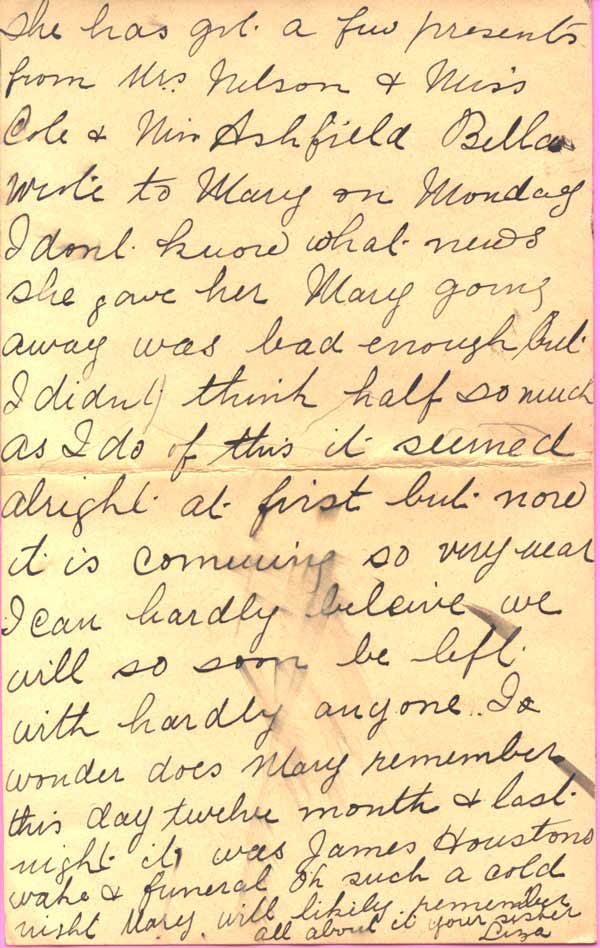 she has got a few presents
from Mrs Nelson & Miss
Cole & Miss Ashfield Bella
wrote to Mary on Monday
I dont know what news
she gave her Mary going
away was bad enough but
I didnt think half so much
as I do of this it seemed
alright at first but now
it is comeing so very near
I can hardly beleive we
will so soon be left
with hardly anyone.. I
wonder does Mary remember
this day twelve month & last
night it was James Houstons
wake & funeral Oh such a cold
night Mary will likely remember
all about it your sister
Liza